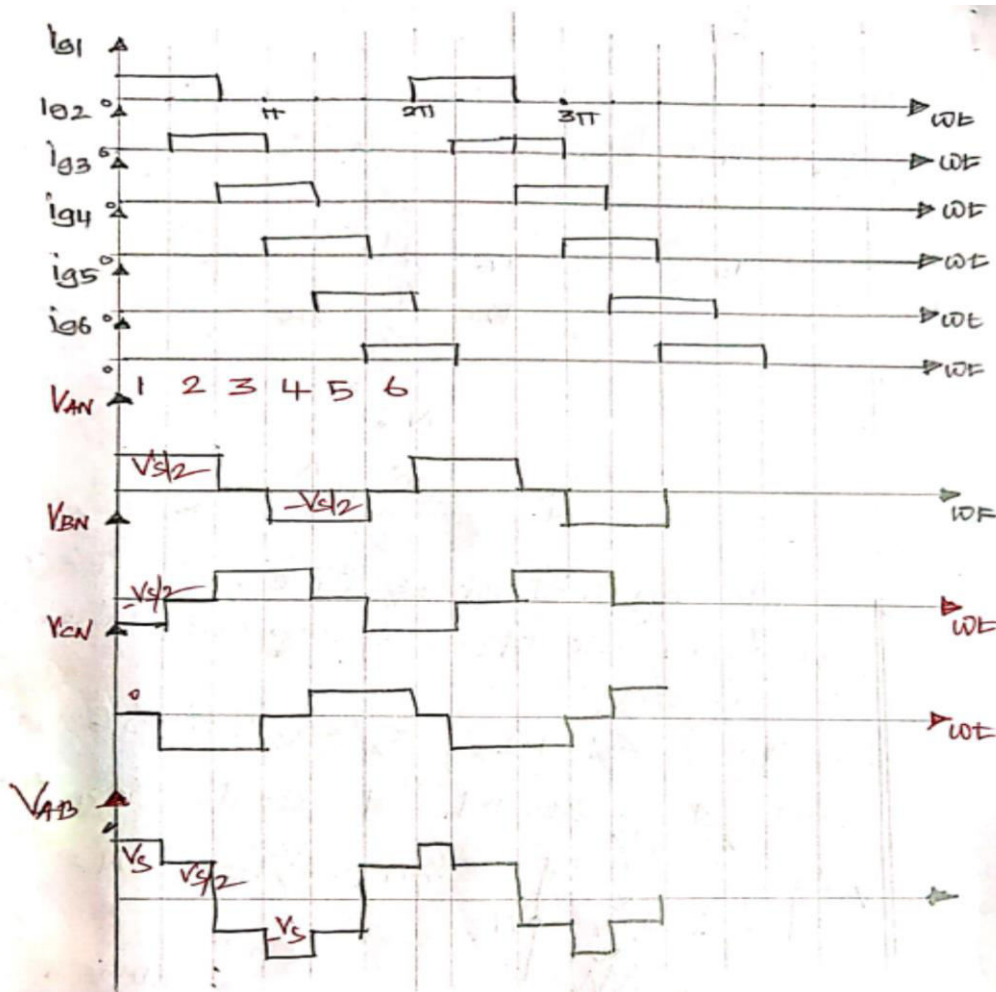 ig1
ig2 0 π 2π 3π ωt
ig3 0 ωt
ig4 0 ωt
ig5 0 ωt
ig6 0 ωt
0 ωt
1 2 3 4 5 6
VAN
Vs/2
-Vs/2
VBN ωt
-Vs/2
VCN ωt
0
ωt
VAB
Vs
Vs/2
-Vs